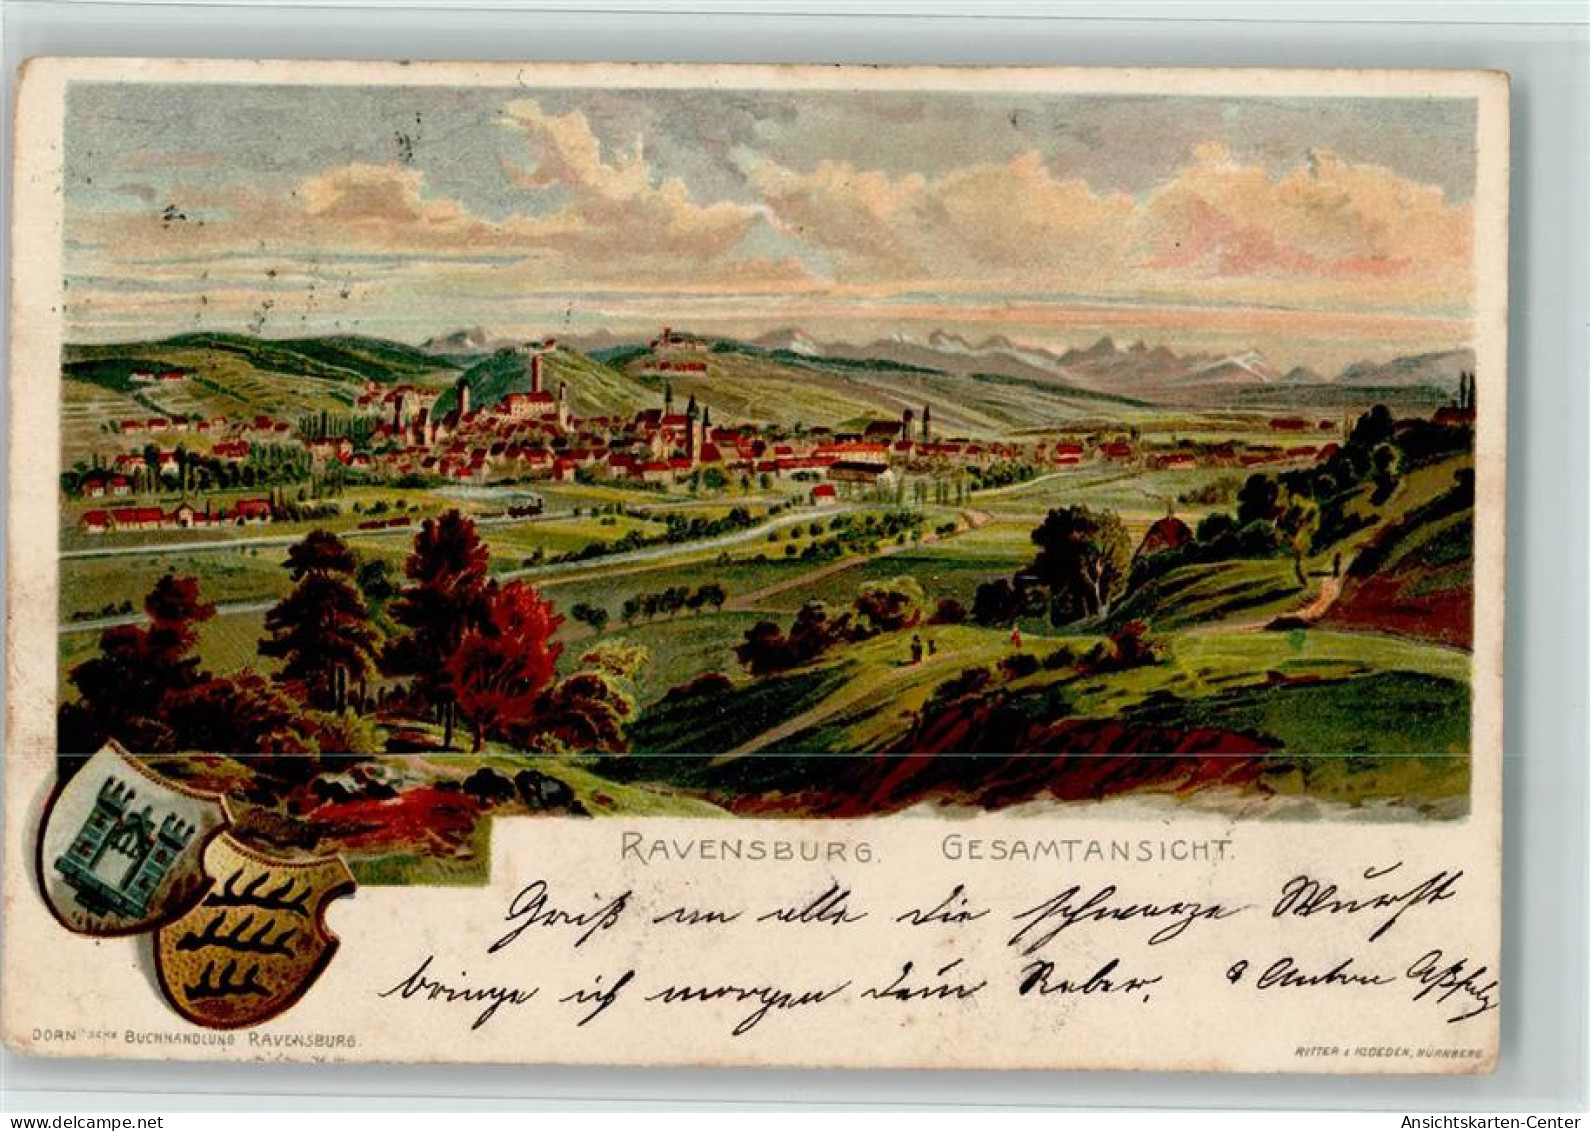 RAVENSBURG. GESAMTANSICHT.
Gruß an alle die schwarze Wurst
bringe ich morgen dein Anton
DORN'SCHE BUCHHANDLUNG RAVENSBURG.
RITTER & KLOEDEN, NÜRNBERG
www.delcampe.net
Ansichtskarten-Center